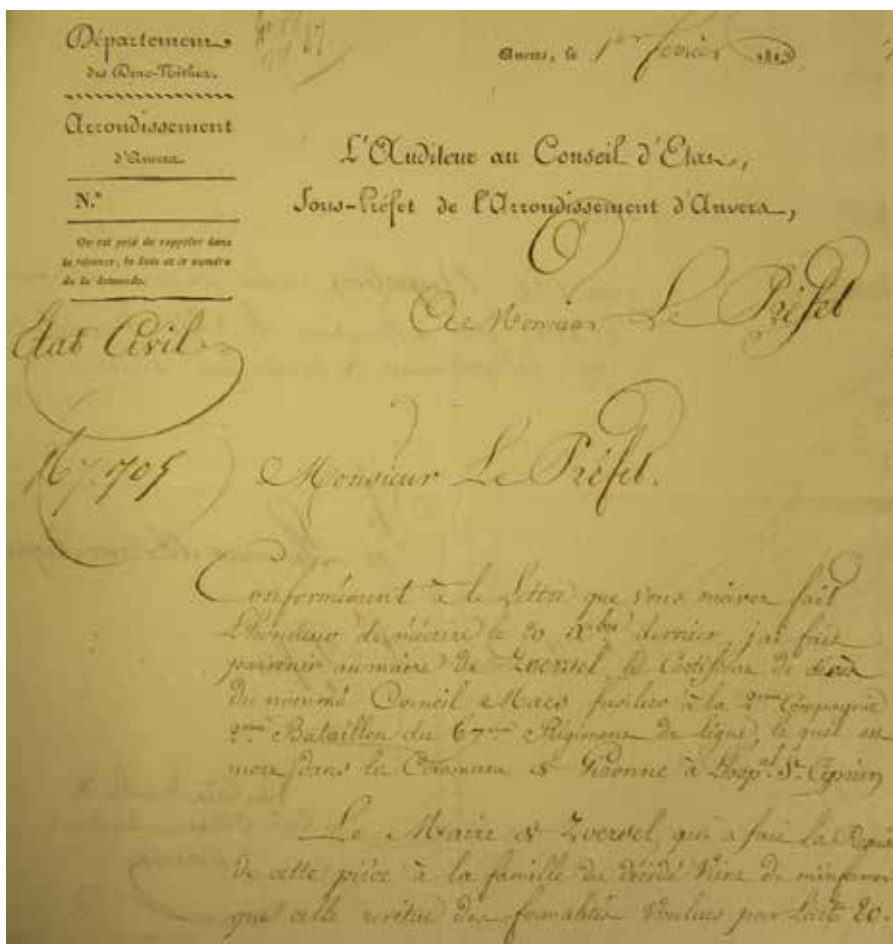 Département
des Deux-Nèthes.
Arrondissement
d'Anvers.
N.º
On est prié de rappeler dans
la réponse, la date et le numéro
de la demande.
87
Anvers, le 1er février
L'Auditeur au Conseil d'Etat,
Sous-Préfet de l'Arrondissement d'Anvers,
A Monsieur Le Préfet
Etat Civil
167.705
Monsieur Le Préfet.
Conformément à la Lettre que vous m'avez fait
L'honneur de m'écrire le 20 Xbre dernier, j'ai fait
parvenir au maire de Zoersel, le Certificat de décès
du nommé Corneil Maes fusilier à la 2me Compagnie
2me Bataillon du 67me Régiment de ligne, le quel est
mort dans la Commune de Gironne à L'hopal St. Ciprien
Le Maire de Zoersel, qui a fait la
de cette pièce à la famille du décédé vient de m'informer
que celle revêtue des formalités voulues par l'art 80.